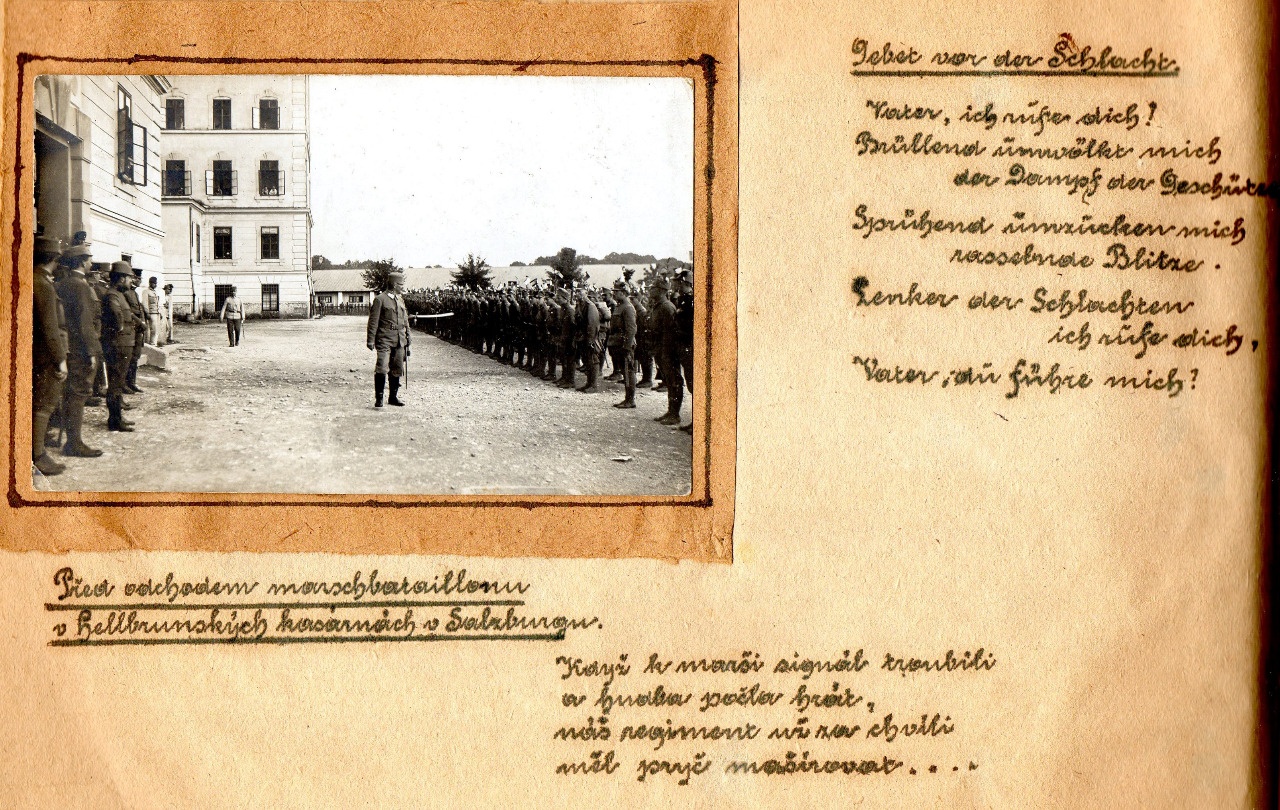 Gebet vor der Schlacht.
Vater, ich rufe dich!
Brüllend ümwölkt mich
der Dampf der Geschütze
Sprühend ümzücken mich
rasselnde Blitze.
Lenker der Schlachten
ich rufe dich,
Vater, du führe mich!
Před odchodem marschbataillonu
v Hellbrunských kasárnách v Salzburgu.
Když k marši signál troubili
a hudba počla hrát,
náš regiment už za chvíli
měl pryč mašírovat....